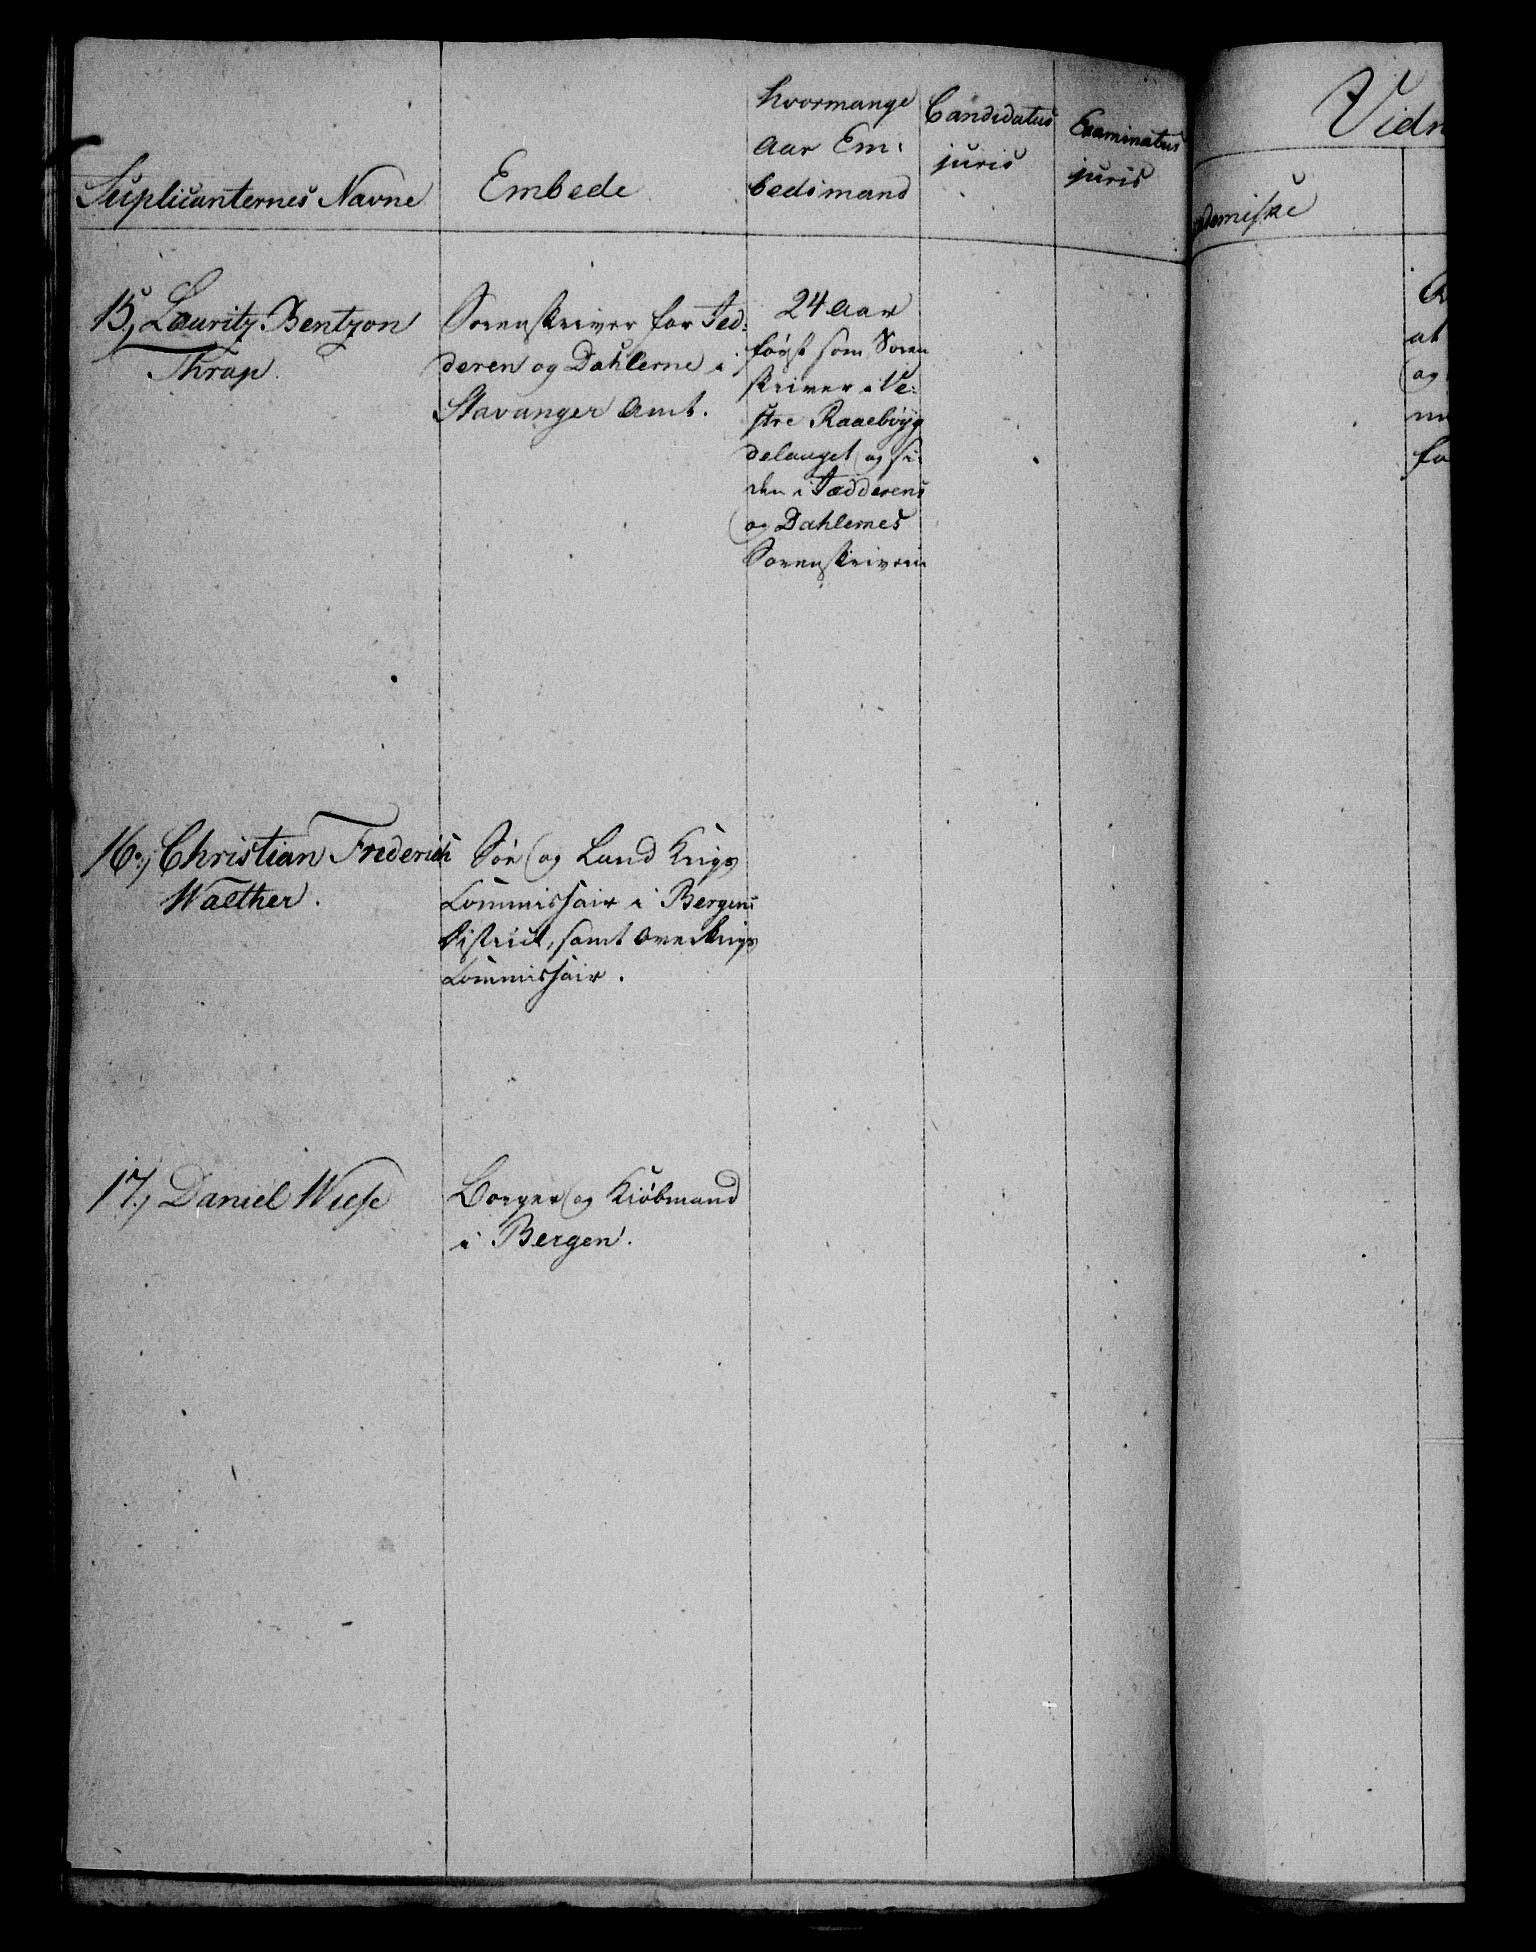 Suplicanternes Navne
Embede
hvormange
Aar Em:
bedsmand
Candidatus
juris
Examinatus
juris
Vidn
ademiske
15, Lauritz Bentzon
Thrap.
Sorenskriver for Jed:
deren og Dahlerne i
Stavanger Amt.
24 Aar
først som Soren
skriver i Ve:
stre Raaebøyg
delauget og si:
den i Jædderens
og Dahlernes
Sorenskriverie
at
og
16, Christian Frederich
Walther.
Søe og Land Krigs
Commissair i Bergens
District, samt Overkrigs
Commissair.
17, Daniel Wiese
Borger og Kiøbmand
i Bergen.